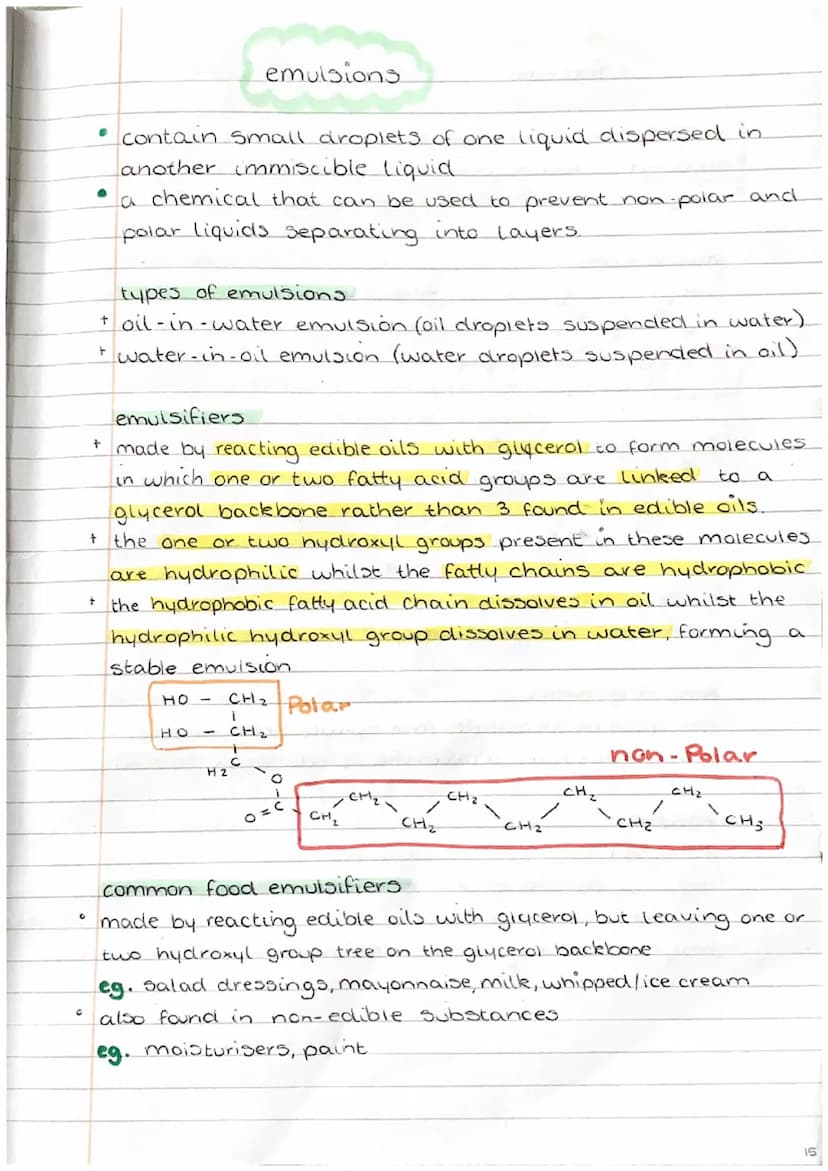 emulsions
• contain small droplets of one liquid dispersed in
another immiscible liquid
• a chemical that can be used to prevent non-polar and
polar liquids separating into layers.
types of emulsions
+ oil-in-water emulsion (oil droplets suspended in water)
+ water-in-oil emulsion (water droplets suspended in oil)
emulsifiers
+ made by reacting edible oils with glycerol to form molecules
in which one or two fatty acid groups are linked to a
glycerol backbone rather than 3 found in edible oils.
+ the one or two hydroxyl groups present in these molecules
are hydrophilic whilst the fatty chains are hydrophobic
+ the hydrophobic fatty acid chain dissolves in oil whilst the
hydrophilic hydroxyl group dissolves in water, forming a
stable emulsion
HO - CH2 Polar
HO - CH2
H2 C
non-Polar
O
O=C
CH2 CH2 CH2 CH2 CH2 CH2 CH2 CH2 CH3
common food emulsifiers
° made by reacting edible oils with glycerol, but leaving one or
two hydroxyl group tree on the glycerol backbone
eg. salad dressings, mayonnaise, milk, whipped/ice cream
° also found in non-edible substances
eg. moisturisers, paint
15